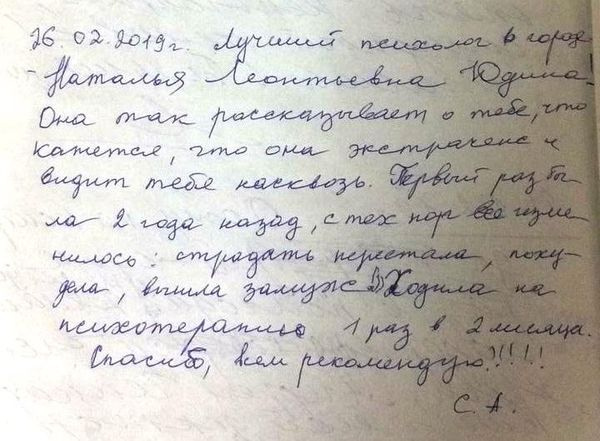 26.02.2019г. Лучший психолог в городе
- Наталья Леонтьевна Юдина!
Она так рассказывает о тебе, что
кажется, что она экстрасенс и
видит тебя насквозь. Первый раз бы-
ла 2 года назад, с тех пор все изме-
нилось: страдать перестала, поху-
дела, вышла замуж)) Ходила на
психотерапию 1 раз в 2 месяца.
Спасибо, всем рекомендую!!!!!
С. А.